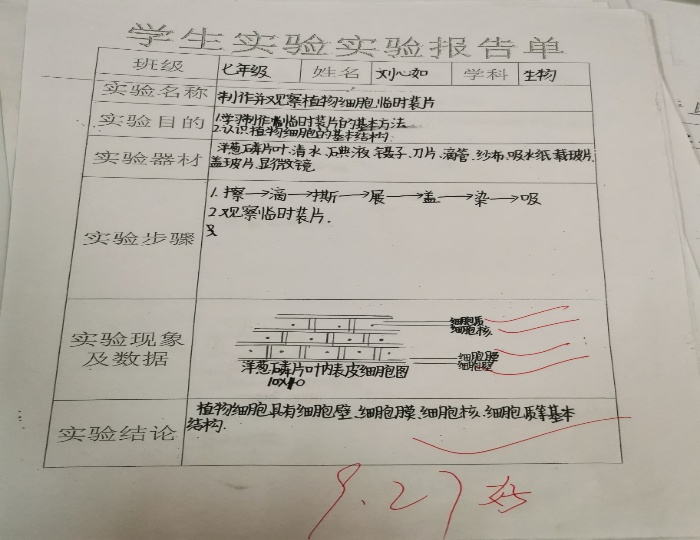 学生实验实验报告单
班级 七年级 姓名 刘心如 学科 生物
实验名称 制作并观察植物细胞临时装片
实验目的 1.学习制作临时装片的基本方法
2.认识植物细胞的基本结构.
实验器材 洋葱磷片叶.清水.石典液.镊子.刀片.滴管.纱布.吸水纸.载玻片.
盖玻片.显微镜.
实验步骤 1.擦→滴→撕→展→盖→染→吸
2.观察临时装片.
实验现象及数据
细胞质
细胞核
细胞膜
细胞壁
洋葱磷片叶内表皮细胞图
10X40
实验结论 植物细胞具有细胞壁.细胞膜.细胞核.细胞质等基本
结构.
9.27 好